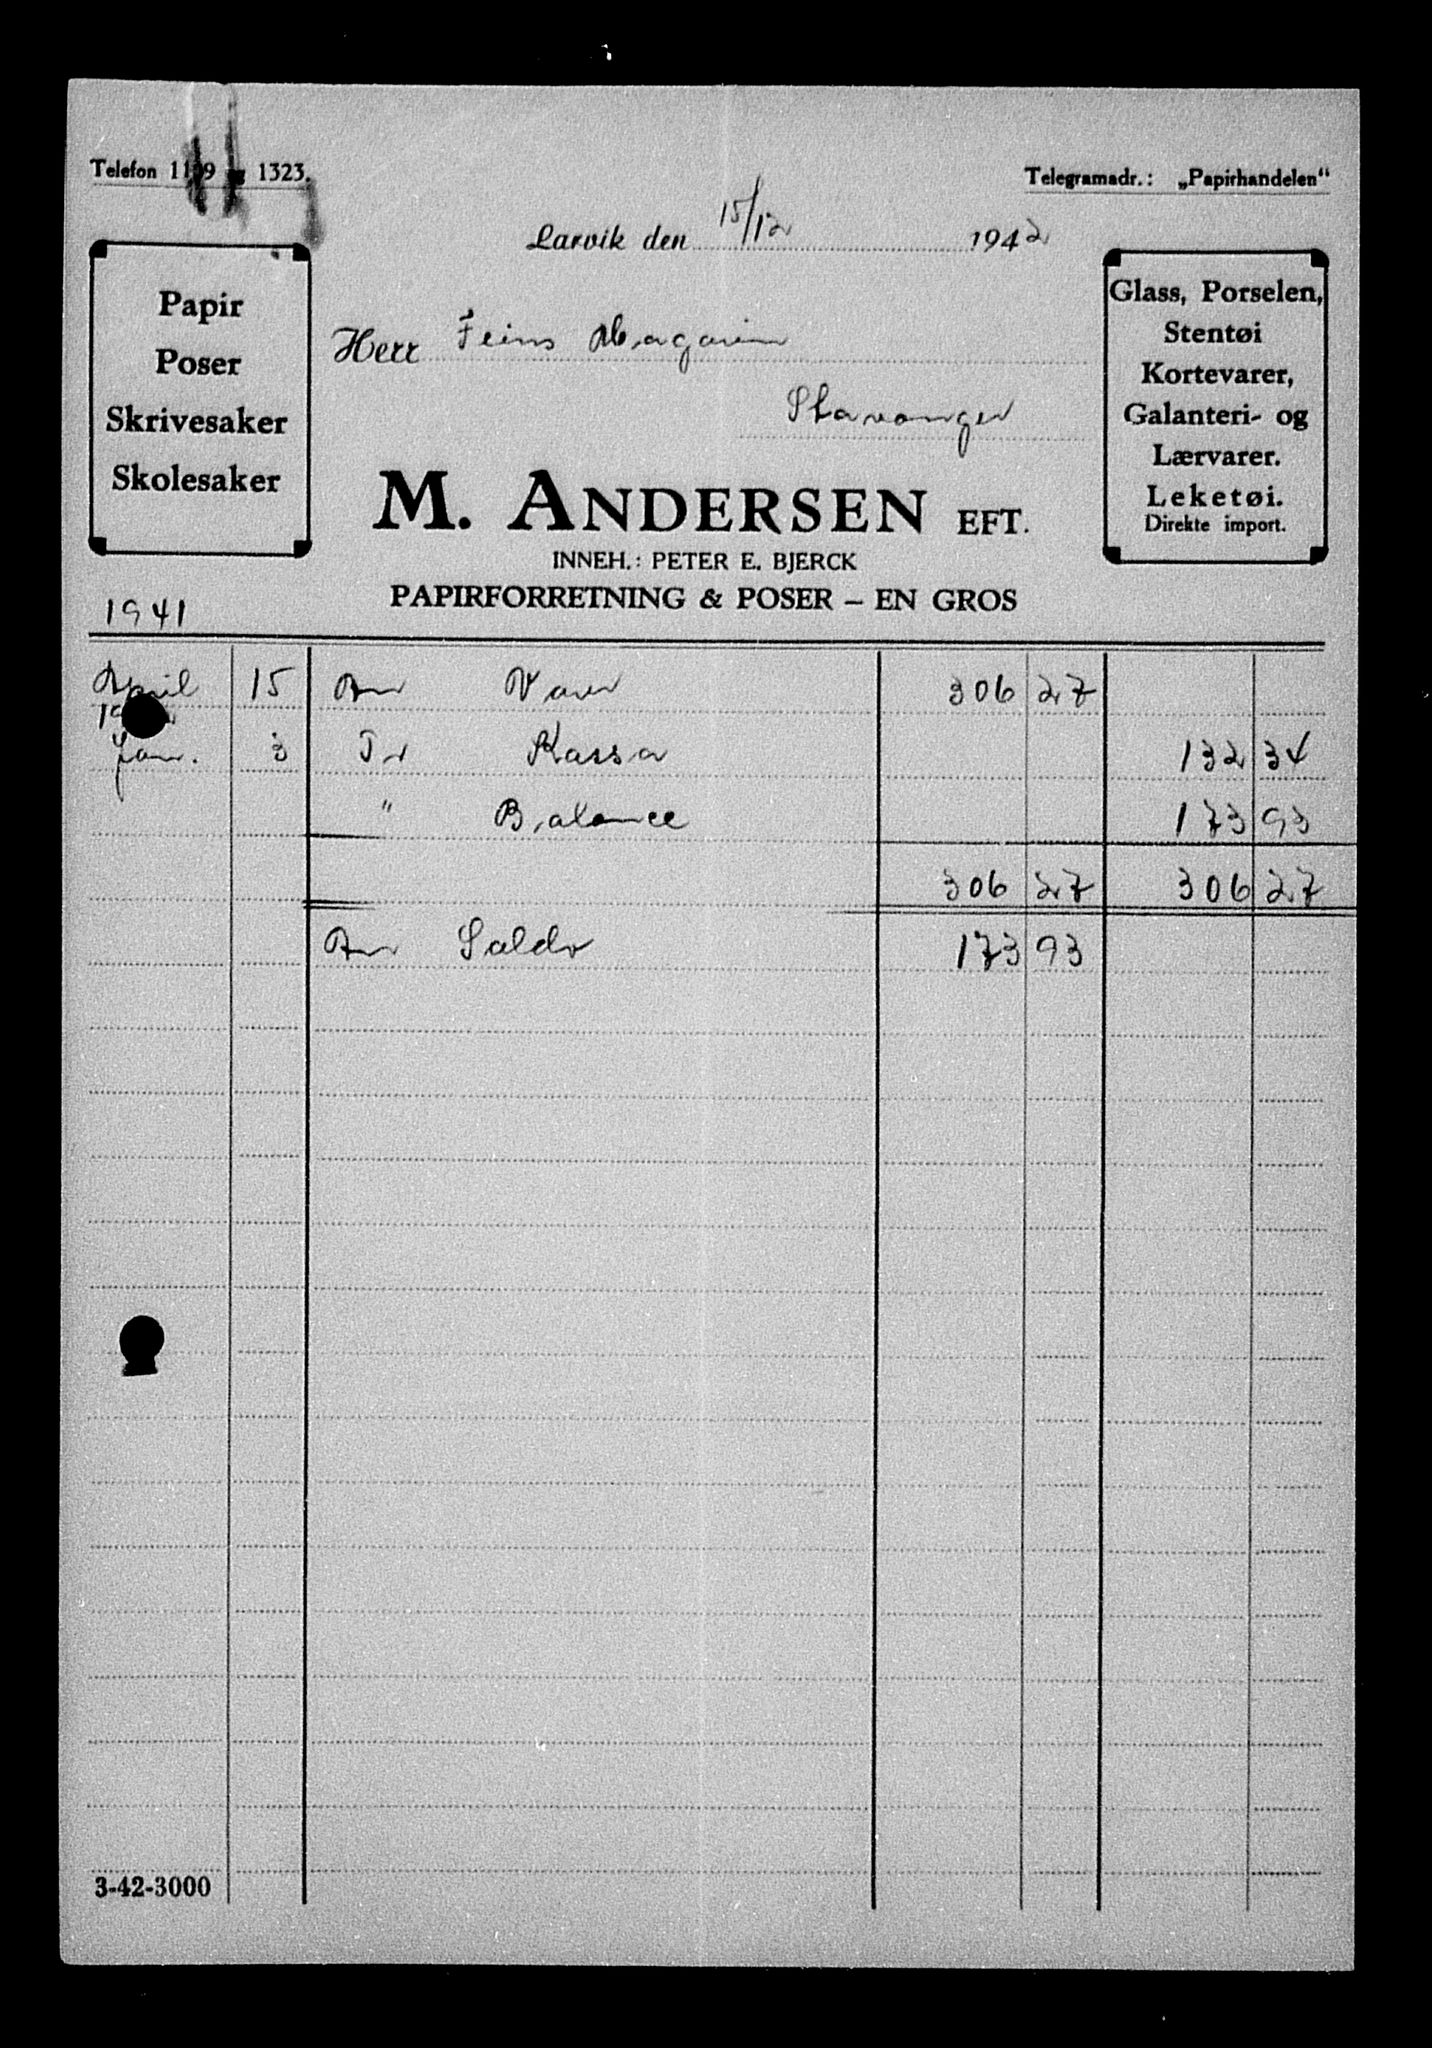 Telefon 1323.
Telegramadr.: „Papirhandelen“
Larvik den 15/12 1942
Papir
Poser
Skrivesaker
Skolesaker
Herr Feins Magasin
Stavanger
Glass, Porselen,
Stentøi
Kortevarer,
Galanteri- og
Lærvarer.
Leketøi.
Direkte import.
M. ANDERSEN EFT.
INNEH.: PETER E. BJERCK
PAPIRFORRETNING & POSER – EN GROS
1941
April 15 An Varer 306 27
Jan. 3 Pr Kassa 132 34
" Balance 173 93
306 27 306 27
An Saldo 173 93
3-42-3000